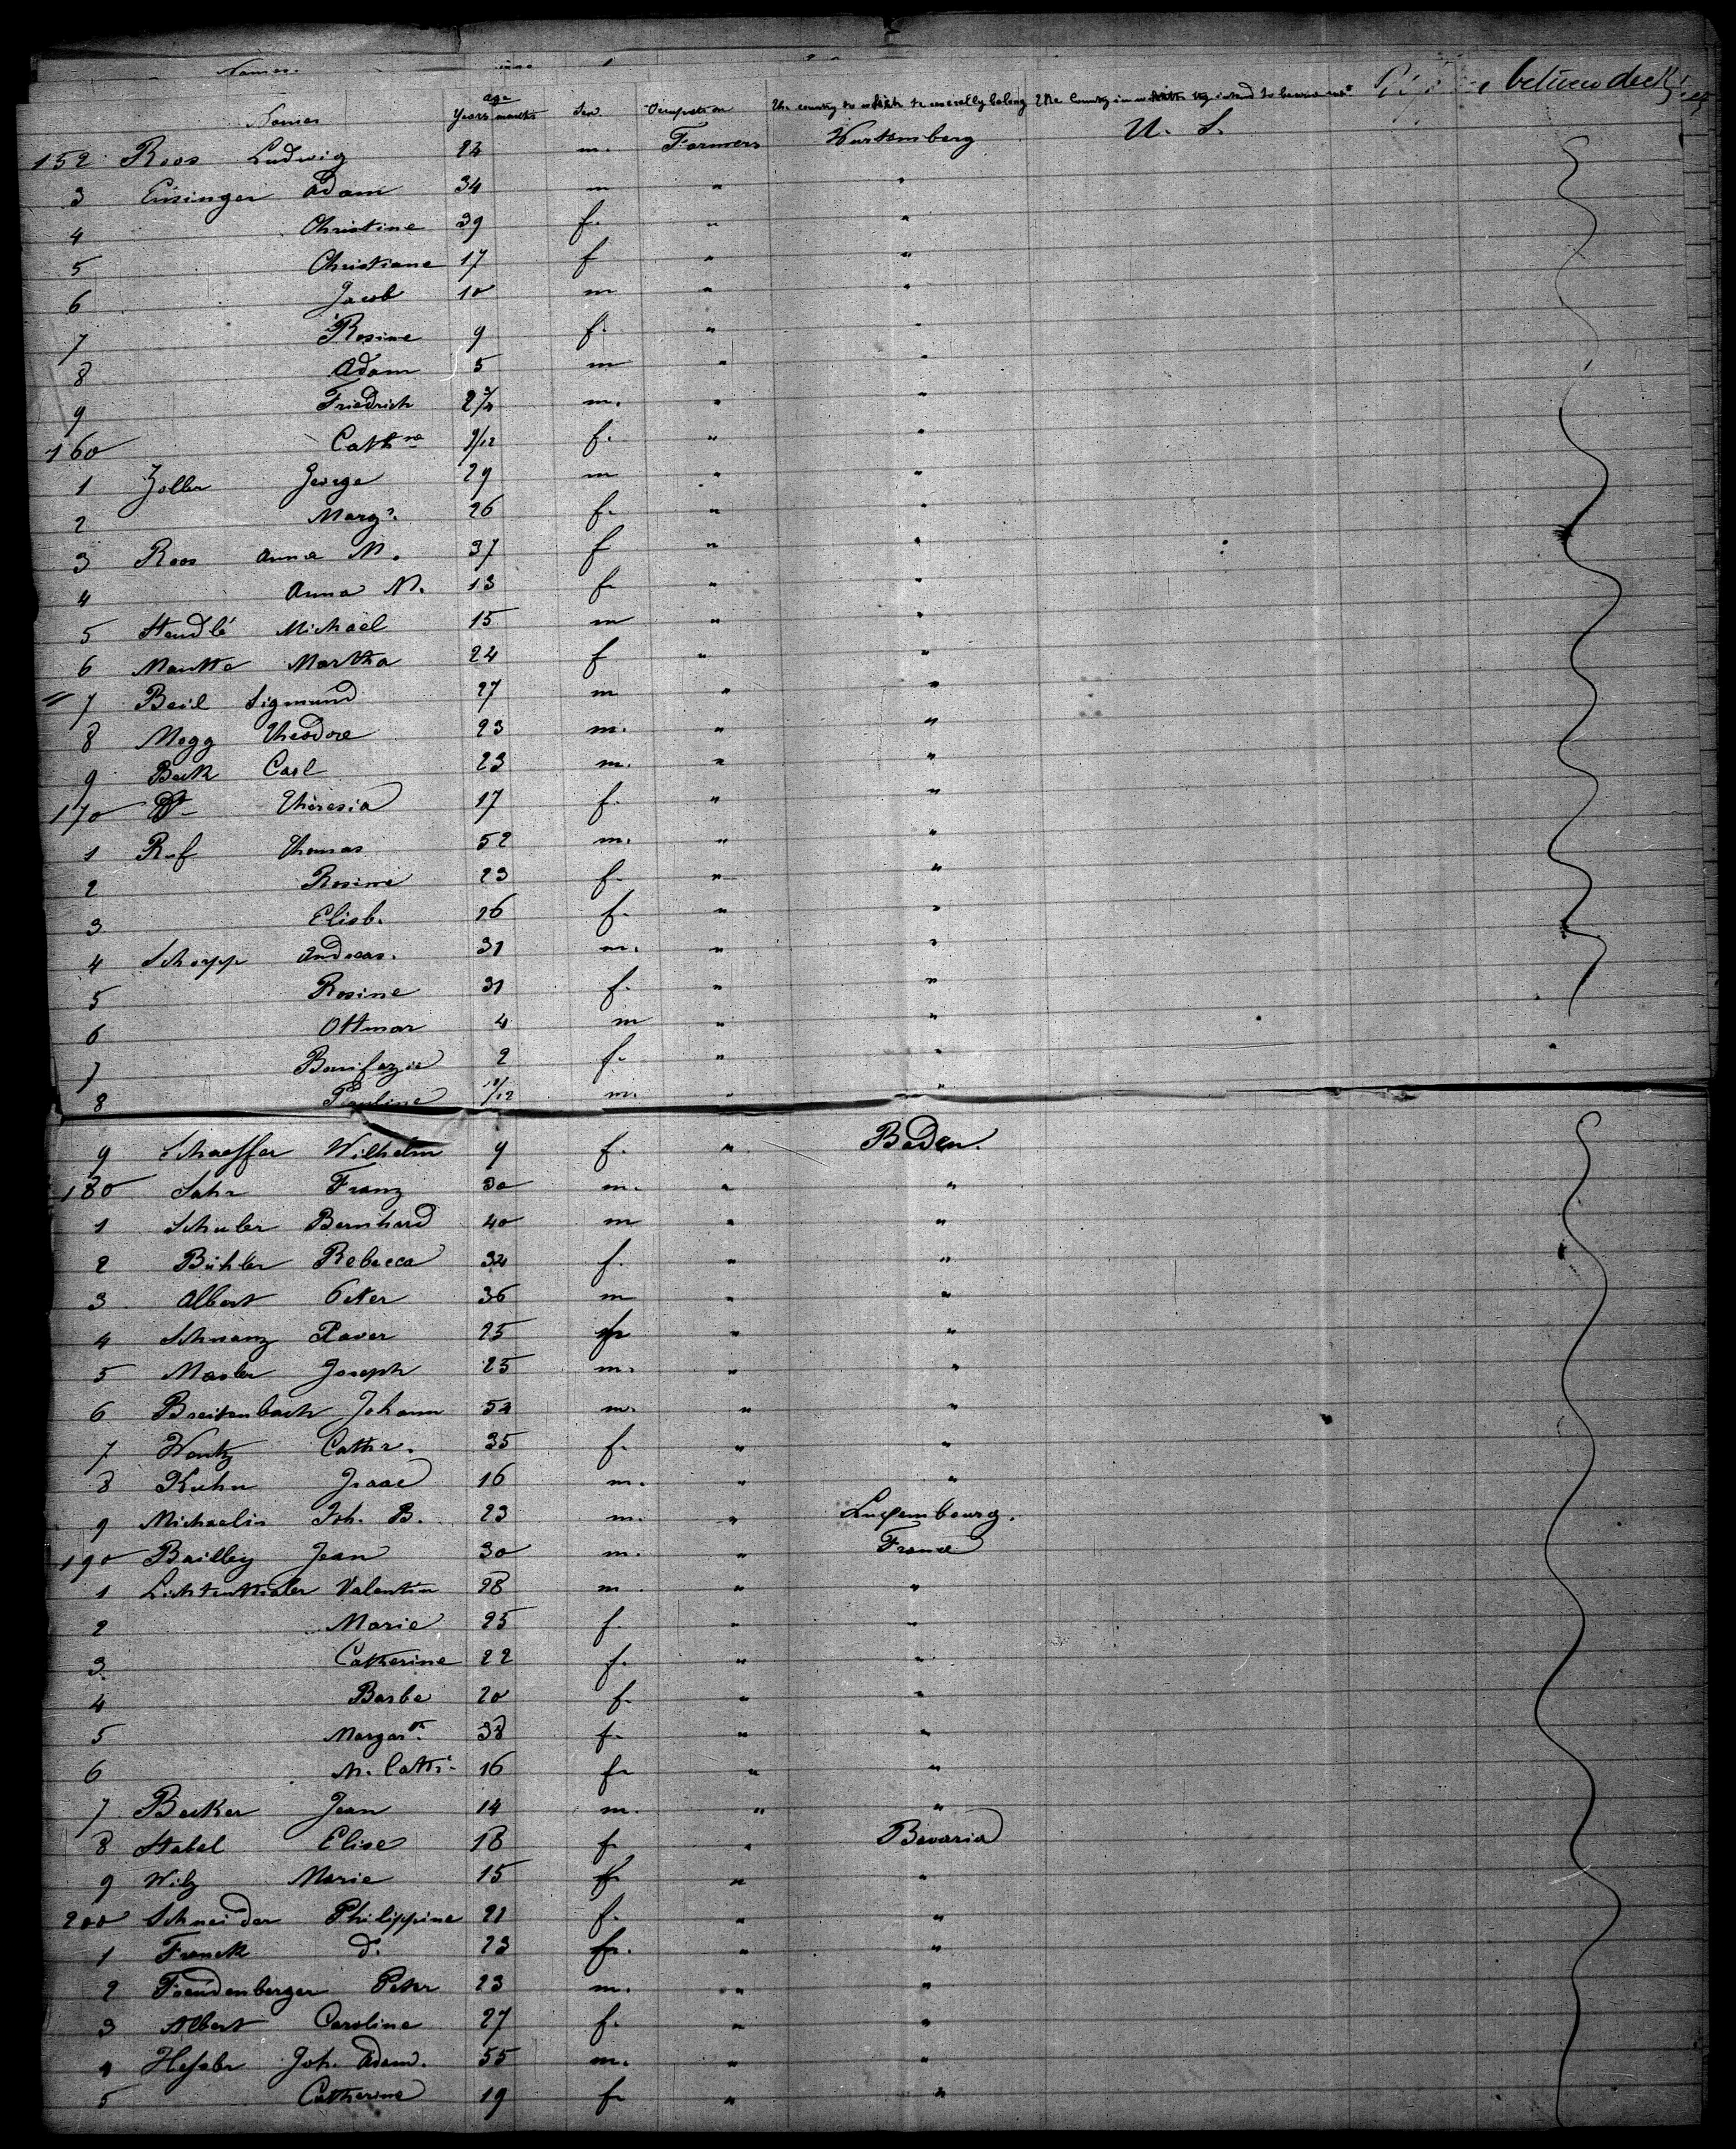 Names.
between deck
Names age Years months Sex. Occupation The country to which they severally belong The Country in which they intend to become
152 Roos Ludwig 24 m. Farmers Wurtemberg U. S.
3 Ensinger Adam 34 m " "
4 Christine 39 f. " "
5 Christiane 17 f " "
6 Jacob 10 m " "
7 Rosine 9 f. " "
8 Adam 5 m " "
9 Friedrich m. " "
160 Cathne 9/12 f. " "
1 Zoller George 29 m " "
2 Marg. 26 f. " "
3 Roos Anna M. 37 f " "
4 Anna M. 13 f. " "
5 Michael 15 m " "
6 Martha 24 f " "
" 7 Beil Sigmund 27 m " "
8 Mogg Theodore 23 m. " "
9 Beck Carl 23 m. " "
170 Do Theresia 17 f. " "
1 Ruf Thomas 52 m. " "
2 Rosine 23 f. " "
3 Elisb. 16 f. " "
4 Schopp Andreas. 31 m. " "
5 Rosine 31 f. " "
6 Ottmar 4 m " "
7 Bonifazie 2 f. " "
8 Pauline m. " "
9 Schaeffer Wilhelm 9 f. " Baden.
180 Sahr Franz 30 m. " "
1 Schuler Bernhard 40 m " "
2 Bühler Rebecca 34 f. " "
3 Albert Peter 36 m " "
4 Schwanz Xaver 25 " "
5 Mosler Joseph 25 m. " "
6 Breitenbach Johann 54 m. " "
7 Wentz Cathr. 35 f. " "
8 Kuhn Isaac 16 m. " "
9 Michaelis Joh. B. 23 m. " Luxembourg.
190 Bailley Jean 30 m. " France
1 Lichtenthaler Valentin 28 m " "
2 Marie 25 f. " "
3 Catherine 22 f. " "
4 Barbe 20 f. " "
5 Margarte 38 f. " "
6 M. Cath. 16 f. " "
7 Becker Jean 14 m. " "
8 Stabel Elise 18 f. " Bavaria
9 Wilz Marie 15 f. " "
200 Schneider Philippine 21 f. " "
1 Franck do. 23 f. " "
2 Freudenberger Peter 23 m. " "
3 Albert Caroline 27 f. " "
4 Hessler Joh. Adam. 55 m. " "
5 Catherine 19 f. " "